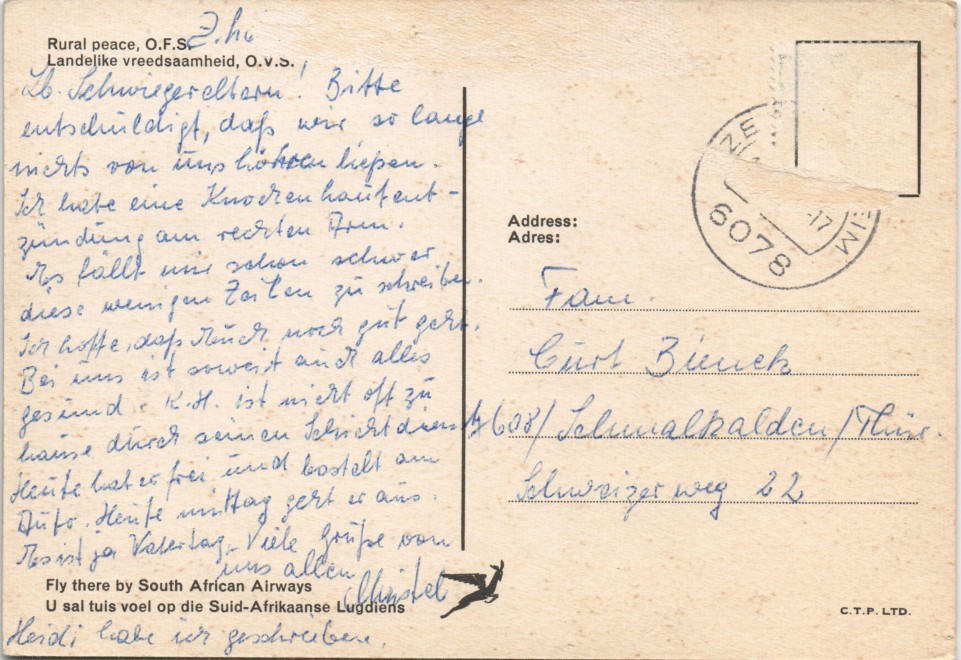 Rural peace, O.F.S.
Landelike vreedsaamheid, O.V.S.
Lb. Schwiegereltern! Bitte
entschuldigt, daß wir so lange
nichts von uns hören ließen.
Ich habe eine Knochenhautent-
zündung am rechten Arm.
Es fällt mir schon schwer
diese wenigen Zeilen zu schreiben.
Ich hoffe, daß Euch noch gut geht.
Bei uns ist soweit auch alles
gesund. K.H. ist nicht oft zu
hause durch seinen Schichtdienst
Heute hat er frei und bastelt am
Auto. Heute mittag geht er aus.
Es ist ja Vatertag. Viele Grüße von
uns allen Christel
Heidi habe ich geschrieben.
Fly there by South African Airways
U sal tuis voel op die Suid-Afrikaanse Lugdiens
6078
-17
Address:
Adres:
Fam.
Curt Bienek
608/Schmalkalden/Thür.
Schweizer weg 22
C.T.P. LTD.